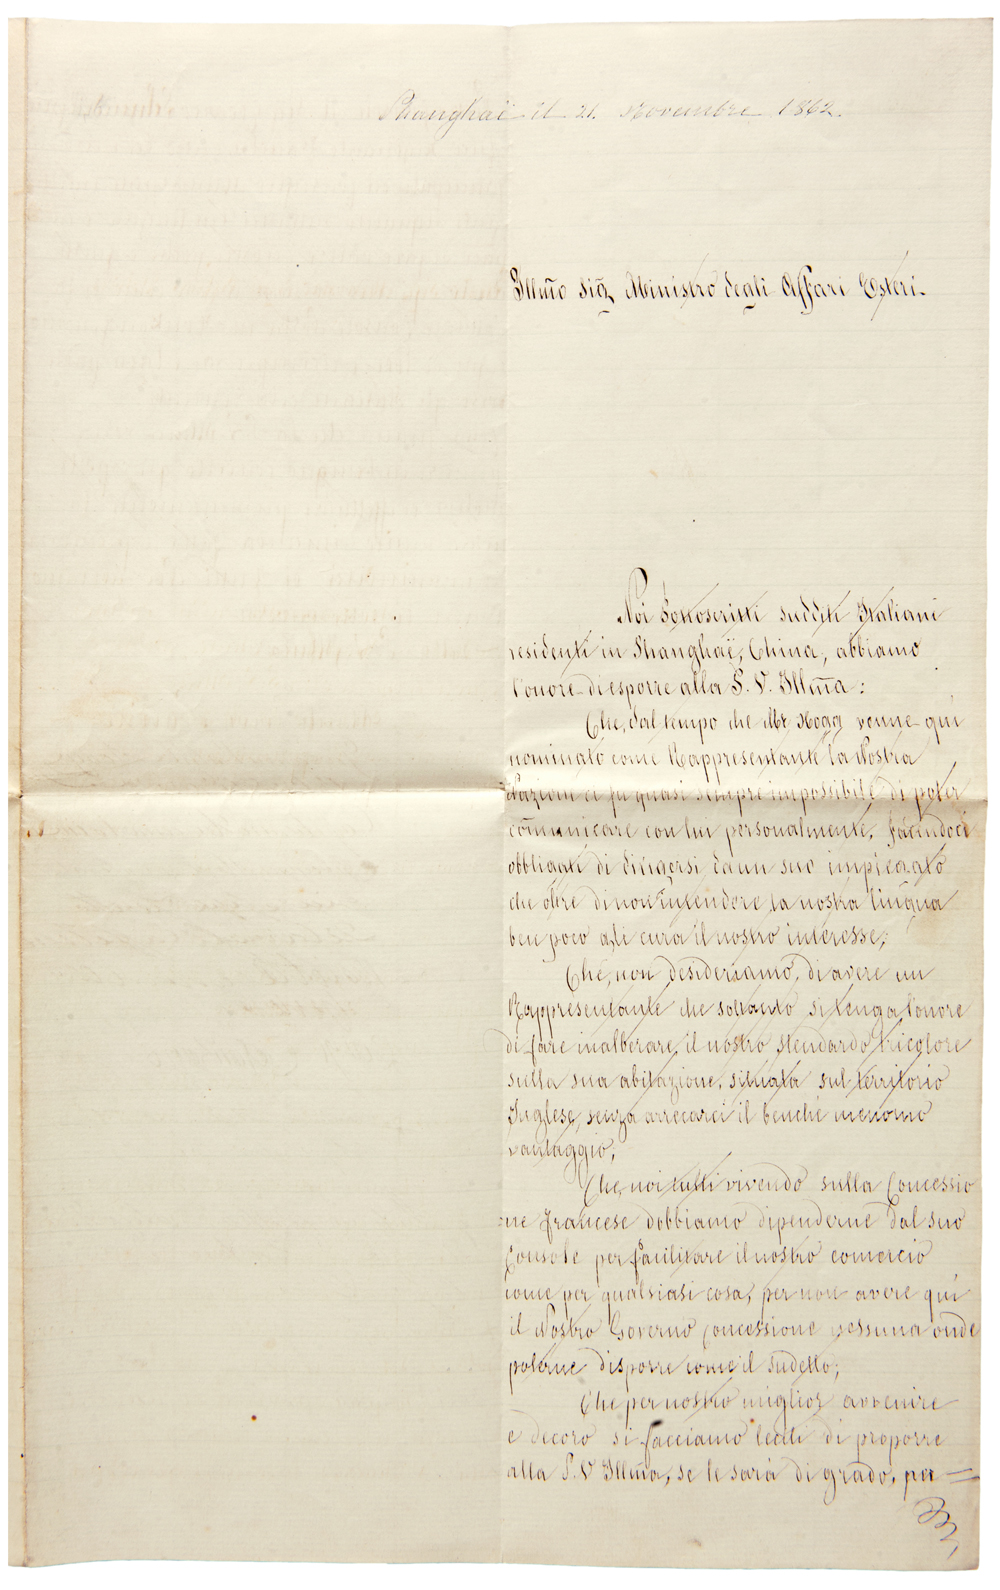 Shanghaï il 21. Novembre 1862.
Illm̃o Sig̃ Ministro degli Affari Esteri.
Noi Sottoscritti sudditi Italiani
residenti in Shanghaï, China, abbiamo
l'onore di esporre alla S. V. Illm̃a:
Che, dal tempo che Mr. Hogg venne qui
nominato come Rappresentante la Nostra
Nazione ci fu quasi sempre impossibile di poter
com̃unicare con lui personalmente, facendoci
obbligati di dirigersi da un suo impiegato
che oltre di non intendere la nostra lingua
ben poco a di cura il nostro interesse;
Che, non desideriamo, di avere un
Rappresentante che soltanto si tenga l'onore
di fare inalberare, il nostro stendardo tricolore
sulla sua abitazione, situata sul territorio
Inglese, senza arrecarci il benché menomo
vantaggio;
Che, noi tutti vivendo sulla Concessio
ne francese dobbiamo dipenderne dal suo
Console per facilitare il nostro comercio
come per qualsiasi cosa, per non avere quì
il Nostro Governo Concessione nessuna onde
poterne disporre come il sudetto;
Che per nostro miglior avvenire
e decoro si facciamo leciti di proporre
alla S. V Illm̃a, se le sarà di grado, per